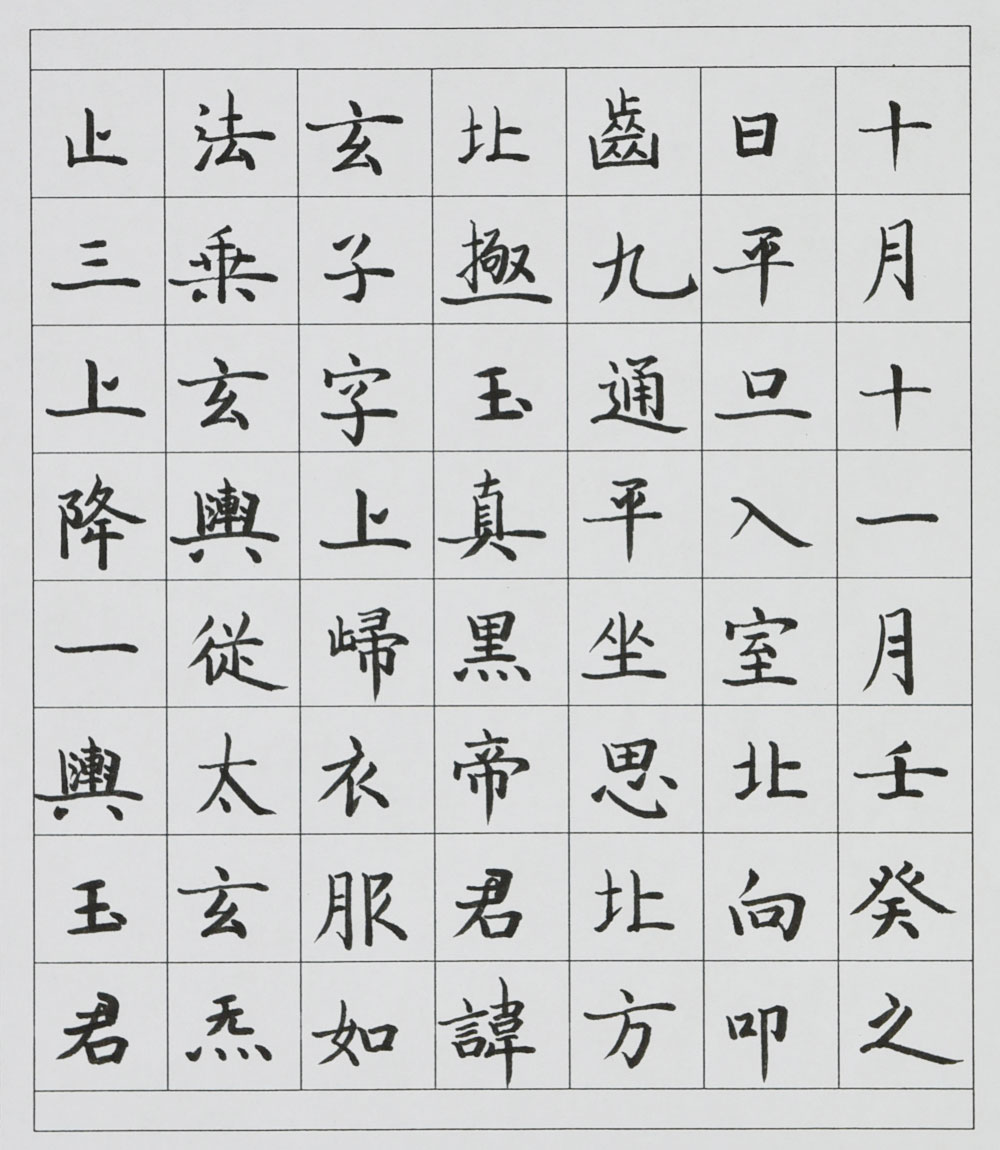 十月十一月壬癸之
日平旦入室北向叩
齒九通平坐思北方
北極玉真黒帝君諱
玄子字上歸衣服如
法乗玄輿従太玄炁
止三上降一輿玉君